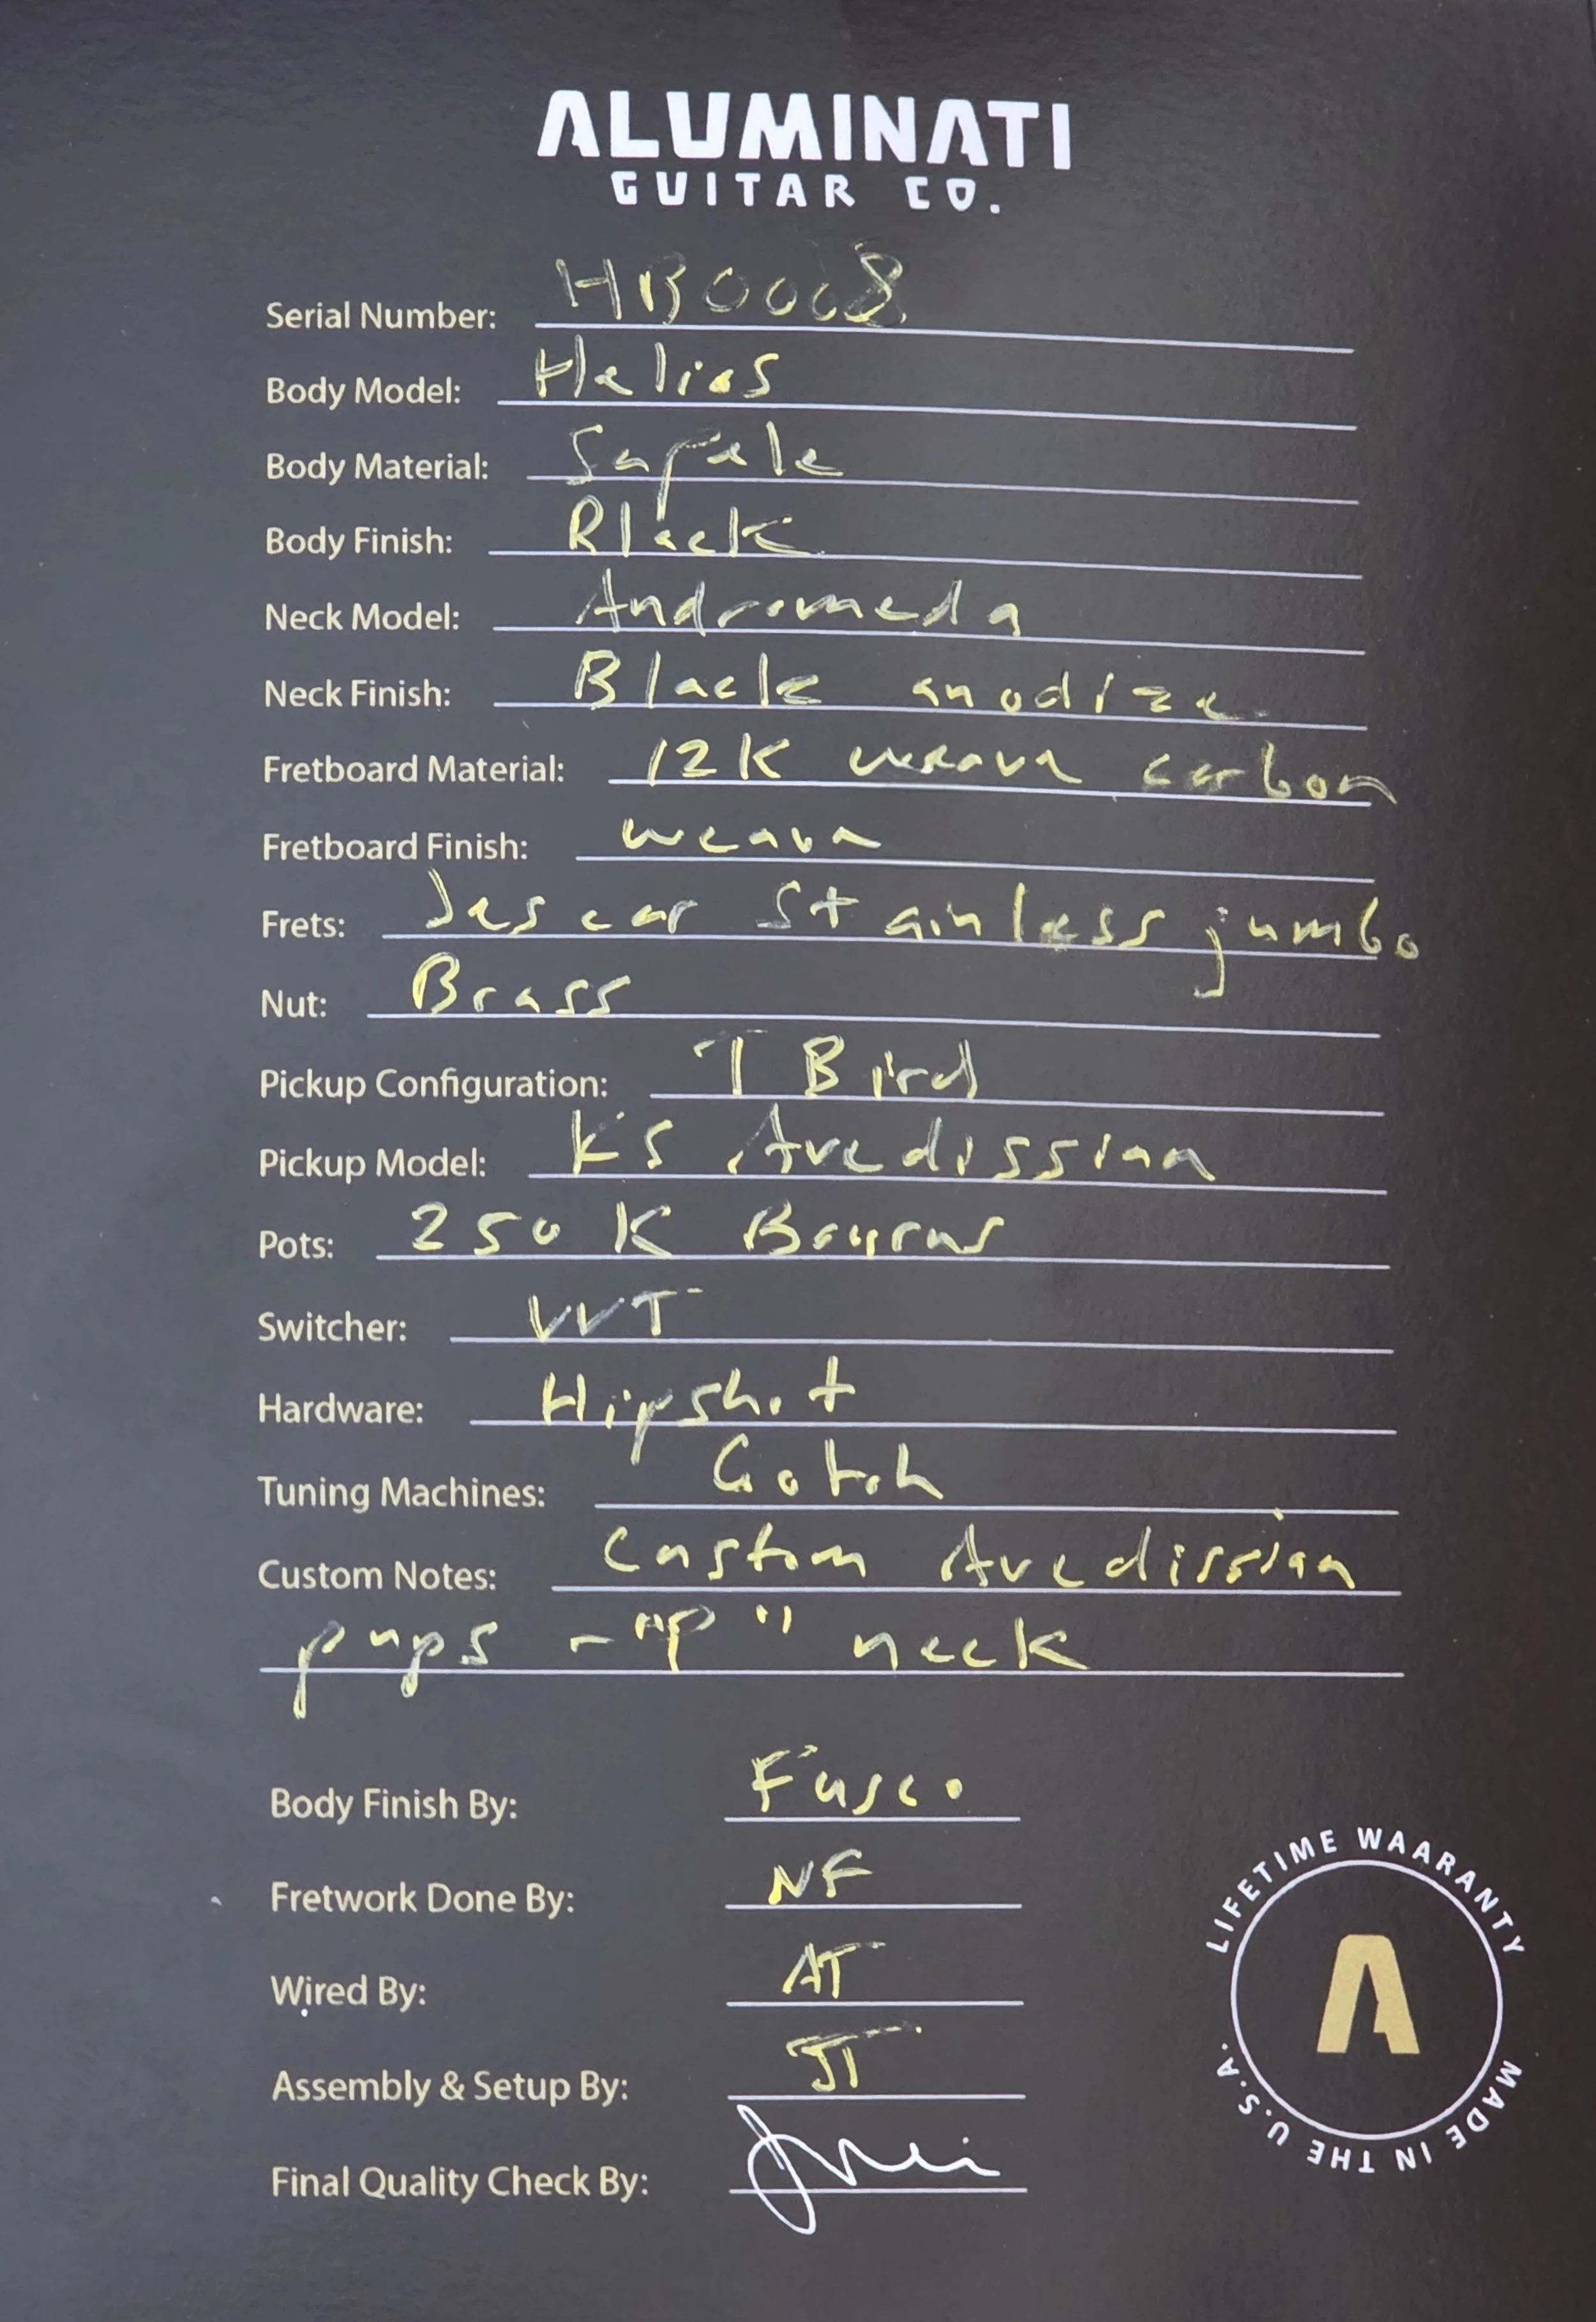 ALUMINATI
GUITAR CO.
Serial Number: HB0008
Body Model: Helios
Body Material: Sapele
Body Finish: Black
Neck Model: Andromeda
Neck Finish: Black anodize
Fretboard Material: 12K weave carbon
Fretboard Finish: weave
Frets: Jescar Stainless jumbo
Nut: Brass
Pickup Configuration: T Bird
Pickup Model: KS Avedissian
Pots: 250 K Bourns
Switcher: VVT
Hardware: Hipshot
Tuning Machines: Gotoh
Custom Notes: Custom Avedissian
pups - "P" neck
Body Finish By: Fusco
Fretwork Done By: NF
Wired By: AT
Assembly & Setup By: JT
Final Quality Check By:
LIFETIME WAARANTY
MADE IN THE U.S.A.